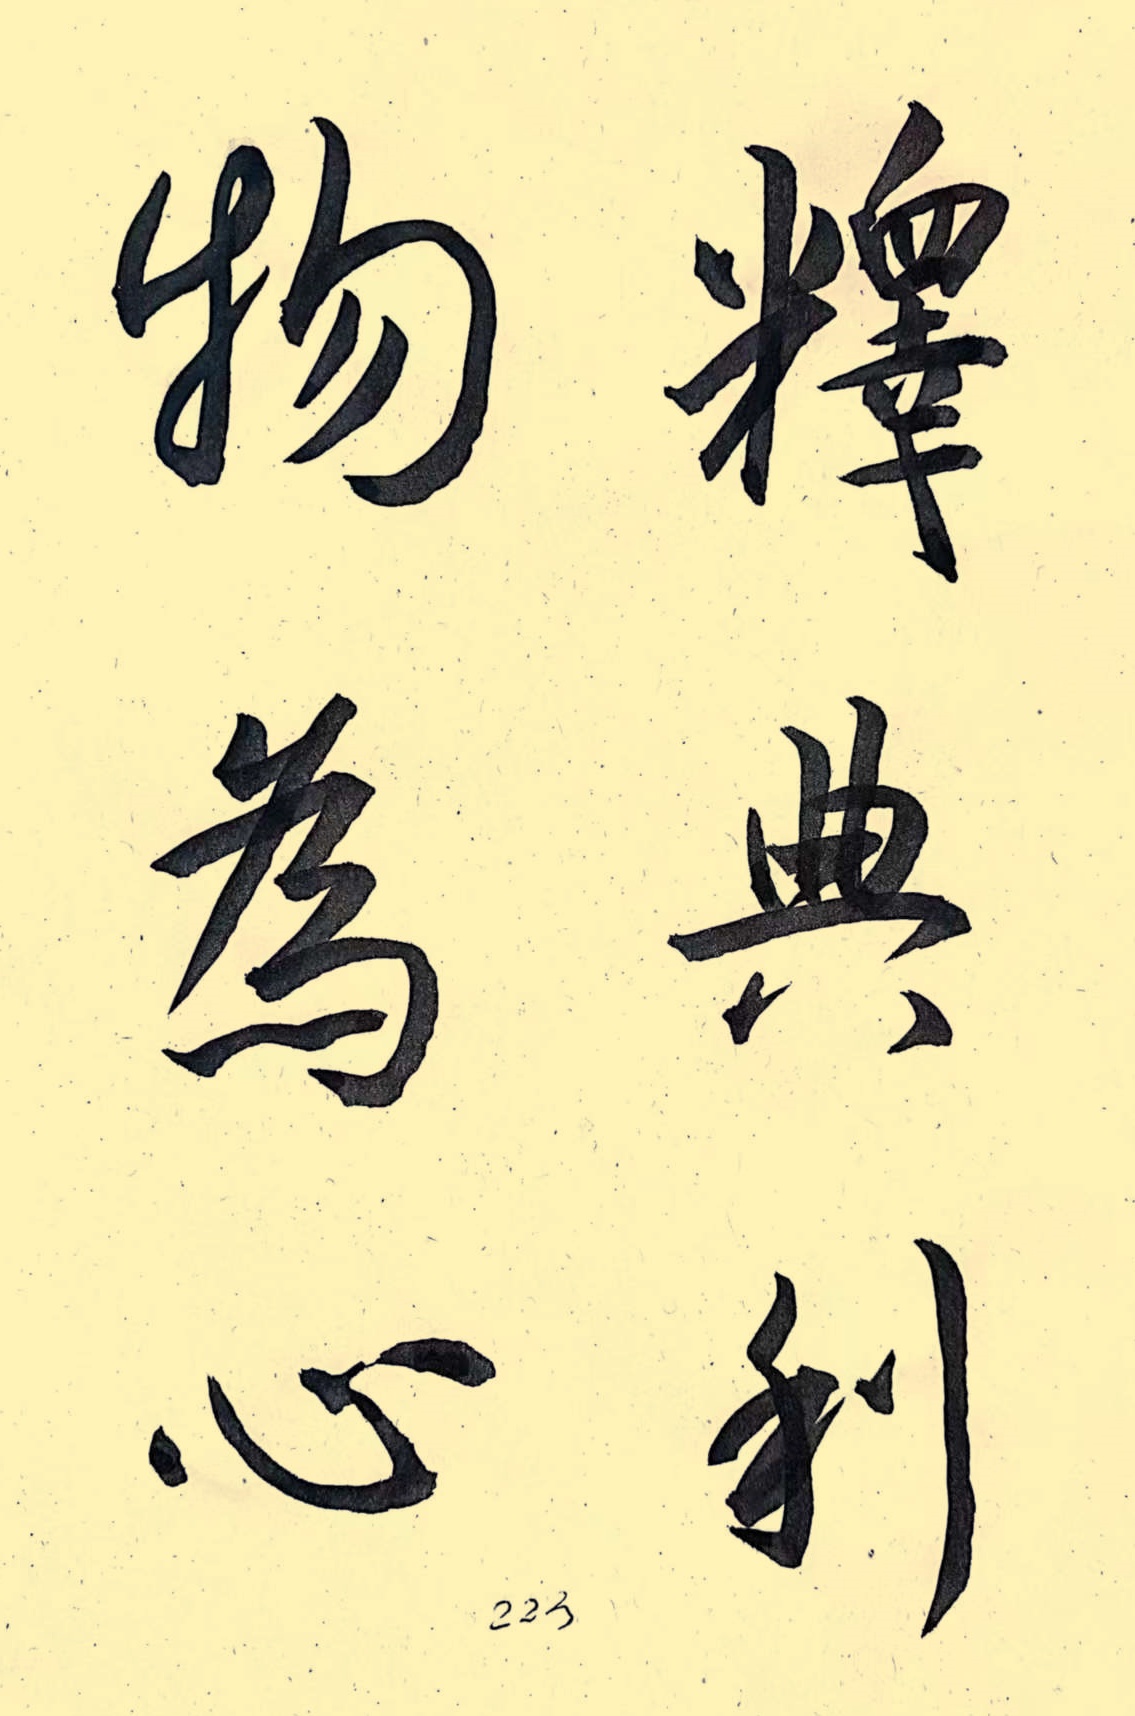 釋典利
物為心
223